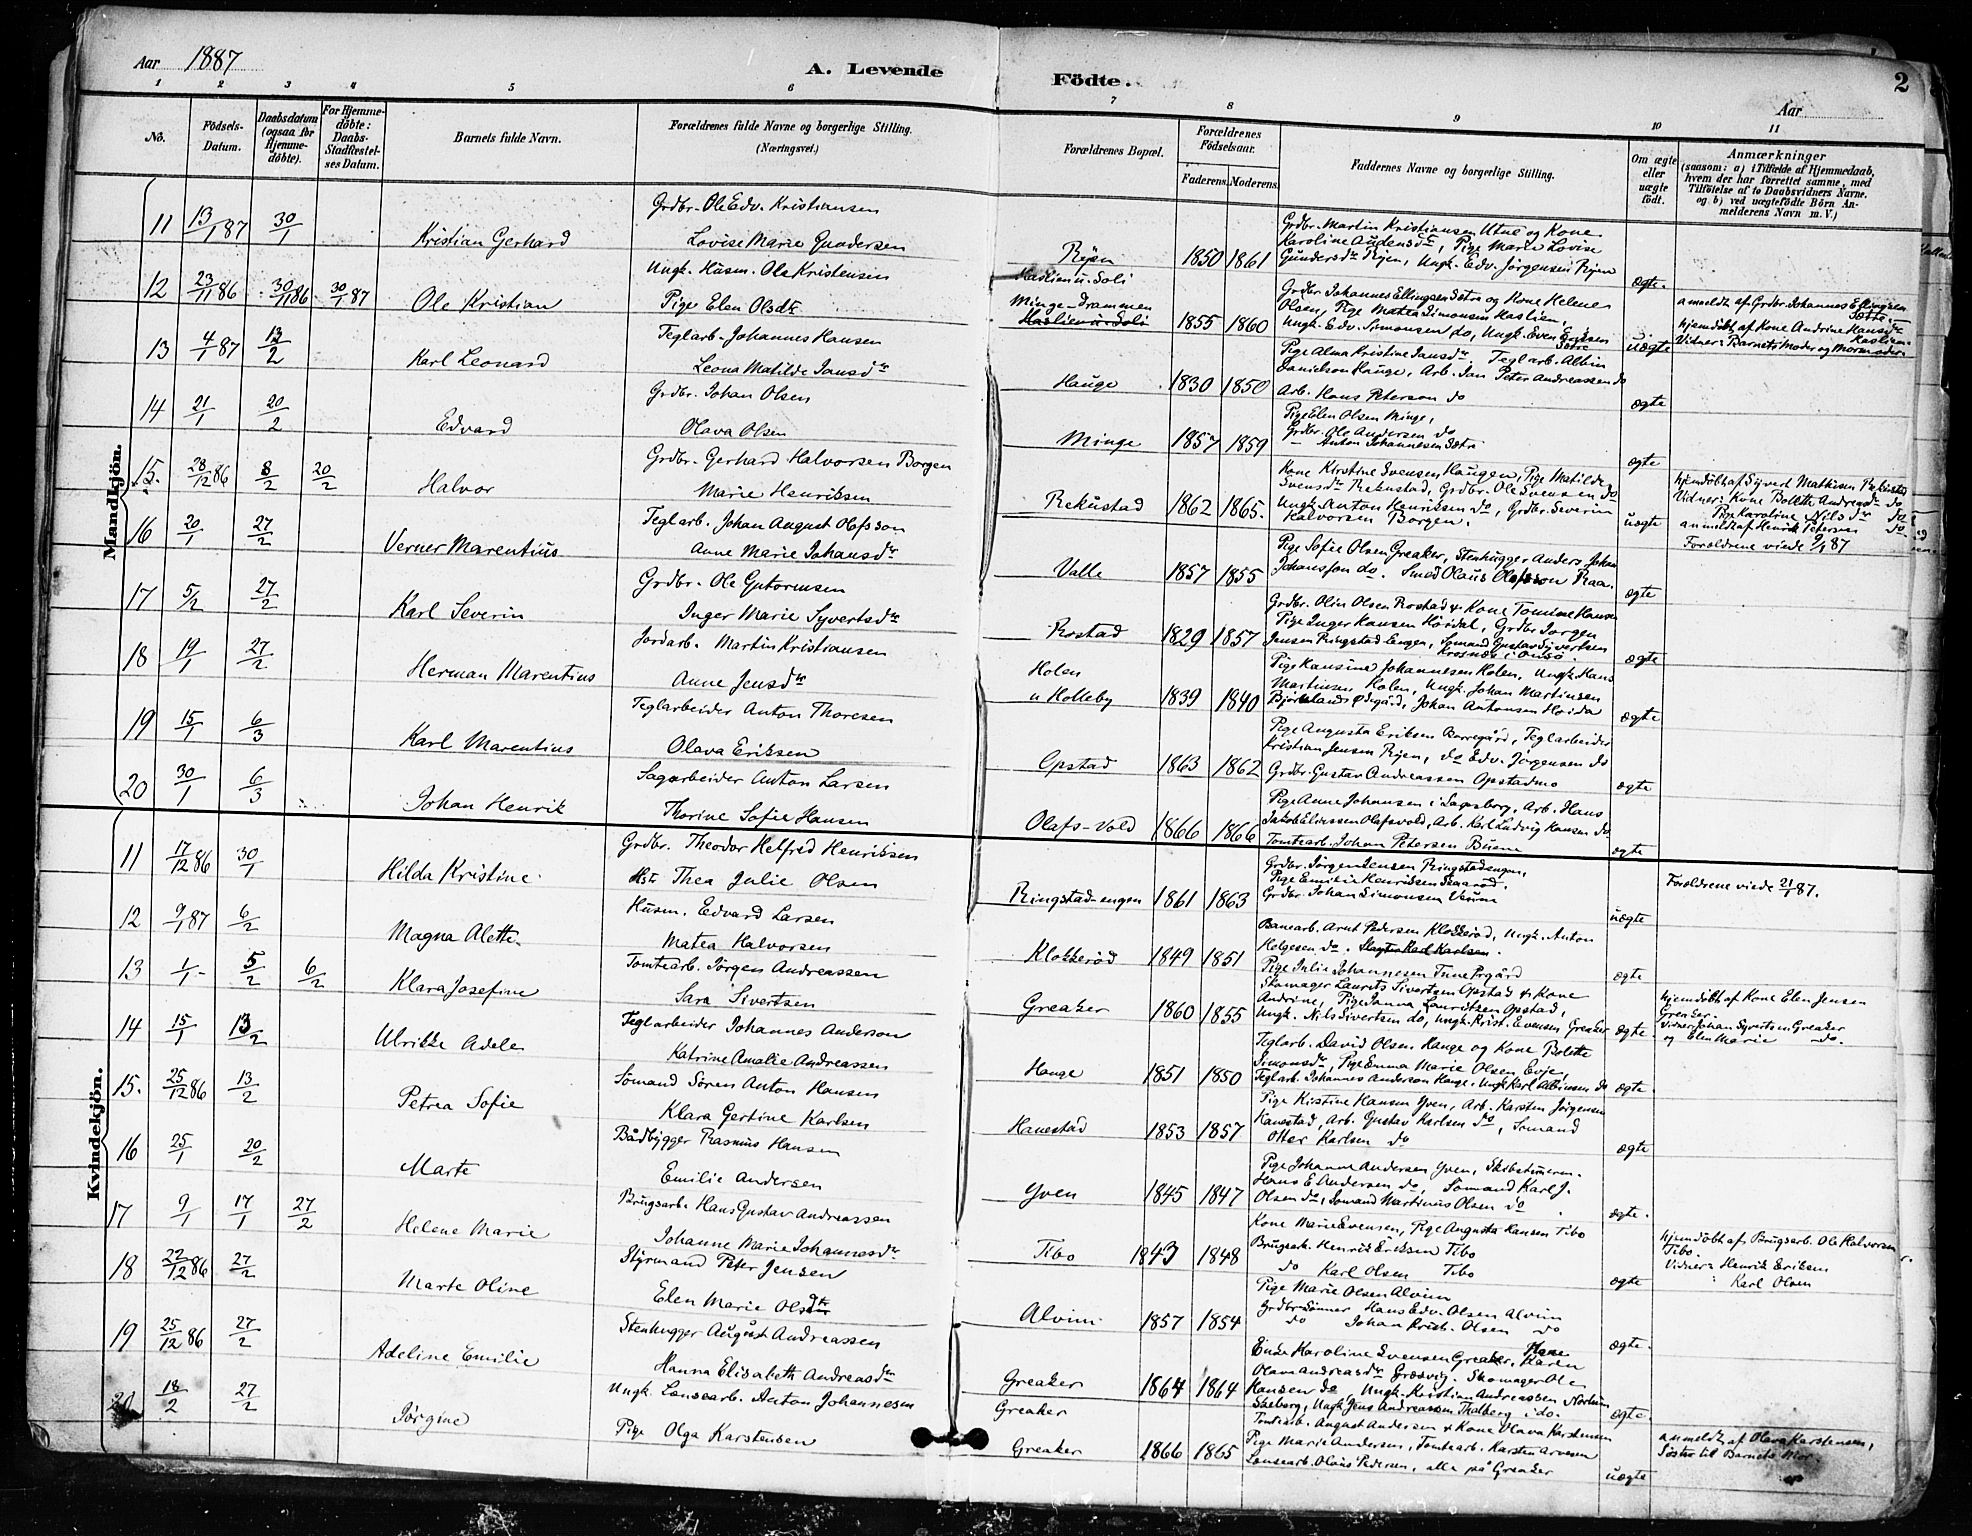 Aar 1887
A. Levende Födte.
2
Aar
1 2 3 4 5 6 7 8 9 10 11
No.
Födsels-Datum.
Daabsdatum (ogsaa for Hjemmedöbte).
For Hjemmedöbte: Daabs-Stadfæstelses Datum.
Barnets fulde Navn.
Forældrenes fulde Navne og borgerlige Stilling. (Næringsvei.)
Forældrenes Bopæl.
Forældrenes Födselsaar.
Faderens. Moderens.
Faddernes Navne og borgerlige Stilling.
Om ægte eller uægte födt.
Anmærkninger
(saasom: a) i Tilfælde af Hjemmedaab, hvem der har forrettet samme, med Tilföielse af to Daabsvidners Navne, og b) ved uægtefödte Börn Anmelderens Navn m. V.)
Mandkjön.
11 13/1 87 30/1 Kristian Gerhard
Grdbr. Ole Edv. Kristiansen
Lovise Marie Gundersen
Rÿen 1850 1861
Grdbr. Martin Kristiansen Utne og Kone
Karoline Audensdtr, Pige Marie Lovise
Gundersdtr Ryen, Ungk. Edv. Jörgensen Ryen
ægte.
12 23/11 86 30/11 86 30/1 87 Ole Kristian
Ungk. Husm. Ole Kristensen
Pige Elen Olsdtr
Haslien u. Soli
Minge-Drammen
Haslien u. Soli 1855 1860
Grdbr Johannes Ellingsen Sotre og Kone Helene
Olsen, Pige Matea Simonsen Haslien,
Ungk. Edv. Simonsen do, Ungk. Even Eriksen
uægte
anmeldt af Grdbr Johannes Ellingsen
hjemdöbt af Kone Andrine Hansdtr
Haslien.
Vidner: Barnets Moder og Mormoder
13 4/1 87 13/2 Karl Leonard
Teglarb. Johannes Hansen
Leona Matilde Jansdtr
Hauge 1830 1850
Pige Alma Kristine Jansdtr, Teglarb. Albin
Danielson Hauge, Arb. Jan Peter Andreassen do
Arb. Hans Peterson do
ægte
14 21/1 20/2 Edvard
Grdbr. Johan Olsen
Olava Olsen
Minge 1857 1859
Pige Elen Olsen Minge,
Grdbr. Ole Andersen do
Anton Johannesen Sotre
ægte
15. 28/12 86 8/2 20/2 Halvor
Grdbr. Gerhard Halvorsen Borgen
Marie Henriksen
Rekustad 1862 1865.
Kone Kirstine Svensen Haugen, Pige Matilde
Svensdtr Rekustad, Grdbr. Ole Svensen do
Ungk. Anton Henriksen do, Grdbr. Severin
Halvorsen Borgen.
uægte
hjemdöbt af Syverd Mathisen Rekustad
Vidner: Kone Bolette Andreasdtr do
Pige Karoline Nilsdtr do
anmeldt af Henrik Petersen do.
Forældrene viede 9/1 87
16 20/1 27/2 Verner Marentius
Teglarb. Johan August Olofsson
Anne Marie Johansdtr
Valle 1857 1855
Pige Sofie Olsen Greaker, Stenhugger Anders Johan
Johansson do. Smed Olaus Olofsson Raa.
ægte
17 5/2 27/2 Karl Severin
Grdbr. Ole Gutormsen
Inger Marie Syvertsdtr
Rostad 1829 1857
Grdbr. Olin Olsen Rostad & Kone Tomine Hansen
Pige Inger Hansen Höidal, Grdbr Jorgen
Jensen Ringstad Engen, Sömand Gustav Sivertsen
Krosnæs i Onsö.
ægte
18 19/1 27/2 Herman Marentius
Jordarb. Martin Kristiansen
Anne Jensdtr
Holen
u Holleby 1839 1840
Pige Hansine Johannesen Holen, Ungk. Hans
Martinsen Holen, Ungk. Johan Martinsen
Bjørnlands Ødegård, Johan Antonsen Hoida
ægte
19 15/1 6/3 Karl Marentius
Teglarbeider Anton Thoresen
Olava Eriksen
Opstad 1863 1862
Pige Augusta Eriksen Borregård, Teglarbeider
Kristian Jensen Ryen, do Edv. Jörgensen do
Grdbr. Gustav Andreassen Opstadmo
ægte
20 30/1 6/3 Johan Henrik
Sagarbeider Anton Larsen
Thorine Sofie Hansen
Olafs-vold 1866 1866
Pige Anne Johansen i Sarpsborg, Arb. Hans
Jakob Eliassen Olafsvold, Arb. Karl Ludvig Hansen do
Tomtearb. Johan Petersen
ægte
Kvindekjön.
11 17/12 86 30/1 Hilda Kristine
Grdbr. Theodor Helfred Henriksen
Hstr Thea Julie Olsen
Ringstad-engen 1861 1863
Grdbr. Jörgen Jensen Ringstadengen,
Pige Emilie Henriksen Skaarod,
Grdbr. Johan Simonsen
uægte
Forældrene viede 21/1 87.
12 9/1 87 6/2 Magna Alette
Husm. Edvard Larsen
Matea Halvorsen
Klokkeröd 1849 1851
Banearb. Arnt Pedersen Klokkeröd, Ungk. Anton
Holgesen do. Slagter Karl Karlsen.
Pige Julie Johannesen Tune Prgård
ægte
13 1/1 5/2 6/2 Klara Josefine
Tomtearb. Jörgen Andreassen
Sara Sivertsen
Greaker 1860 1855
Skomager Laurits Sivertsen Opstad & Kone
Andrine, Pige Janna Lauritzen Opstad,
Ungk. Nils Sivertsen do, Ungk. Krist. Evensen Greaker
ægte.
hjemdöbt af Kone Elen Jensen
Greaker.
Vidner: Johan Syvertsen Greaker
og Elen Marie do.
14 15/1 13/2 Ulrikke Adele
Teglarbeider Johannes Anderson
Katrine Amalie Andreassen
Hauge 1851 1850
Teglarb. David Olsen Hauge og Kone Bolette
Simonsdtr, Pige Emma Marie Olsen Evje,
Teglarb. Johannes Anderson Hauge, Ungk Karl Albinsen do
ægte
15. 25/12 86 13/2 Petrea Sofie
Sömand Sören Anton Hansen
Klara Gertine Karlsen
Hanestad 1853 1857
Pige Kirstine Hansen Yven, Arb. Karsten Jörgensen
Hanestad, Arb. Gustav Karlsen do, Sömand
Otter Karlsen do
ægte
16 25/1 20/2 Marte
Bådbygger Rasmus Hansen
Emilie Andersen
Yven 1845 1847
Pige Johanne Andersen Yven, Skibstömm.
Hans E Andersen do, Sömand Karl J.
Olsen do, Sömand Martinus Olsen do
ægte.
17 9/1 17/1 27/2 Helene Marie
Brugsarb. Hans Gustav Andreassen
Johanne Marie Johannesdtr
Tibo 1843 1848
Kone Marie Evensen, Pige Augusta Hansen Tibo
Brugsarb. Henrik Eriksen Tibo
do Karl Olsen Tibo
ægte
hjemdöbt af Brugsarb. Ole Halvorsen
Tibo.
Vidner: Henrik Eriksen
" Karl Olsen
18 22/12 86 27/2 Marte Oline
Styrmand Peter Jensen
Elen Marie Olsdtr
Alvim 1857 1854
Pige Marie Olsen Alvim
Grdbr Sönner Hans Edv. Olsen Alvim
do Johan Krist. Olsen do
ægte.
19 25/12 86 27/2 Adeline Emilie
Stenhugger August Andreassen
Hanna Elisabeth Andreasdtr
Greaker 1864 1864
Enke Karoline Svensen Greaker, Kone Karen
Olava Andreasdtr Græsvig. Skomager Ole
Hansen do, Ungk. Kristian Andreassen Nordum
Skeberg, Ungk Jens Andreassen Thalberg i do.
ægte.
20 18/2 27/2 Jörgine
Ungk. Lensearb. Anton Johannesen
Pige Olga Karstensen
Greaker
Greaker 1866 1865
Tomtearb. August Andersen & Kone Olava Karstensen
Pige Marie Andersen, Tomtearb. Karsten Arvesen
Lensearb. Olaus Pedersen, alle på Greaker
uægte
anmeldt af Olava Karstensen,
Söster til Barnets Mor.